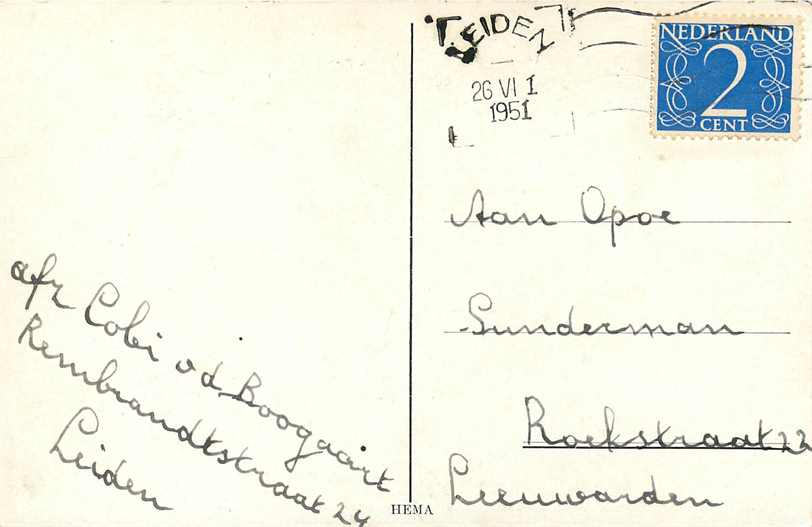 LEIDEN
26 VI 1
1951
NEDERLAND
2
CENT
Aan Opoe
Sunderman
Roekstraat 22
Leeuwarden
afz Cobi vd Boogaart
Rembrandtstraat 24
Leiden
HEMA